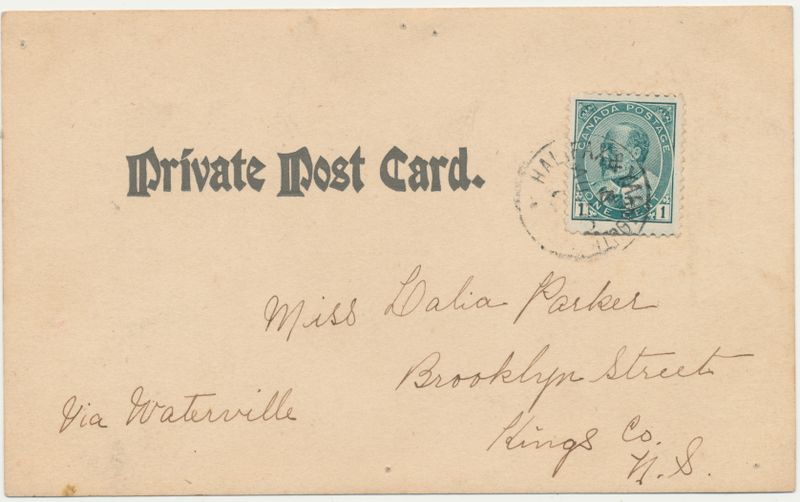 CANADA POSTAGE
1 ONE CENT 1
HALIFAX
Private Post Card.
Miss Dalia Parker
Brooklyn Street
Via Waterville
Kings Co.
N.S.